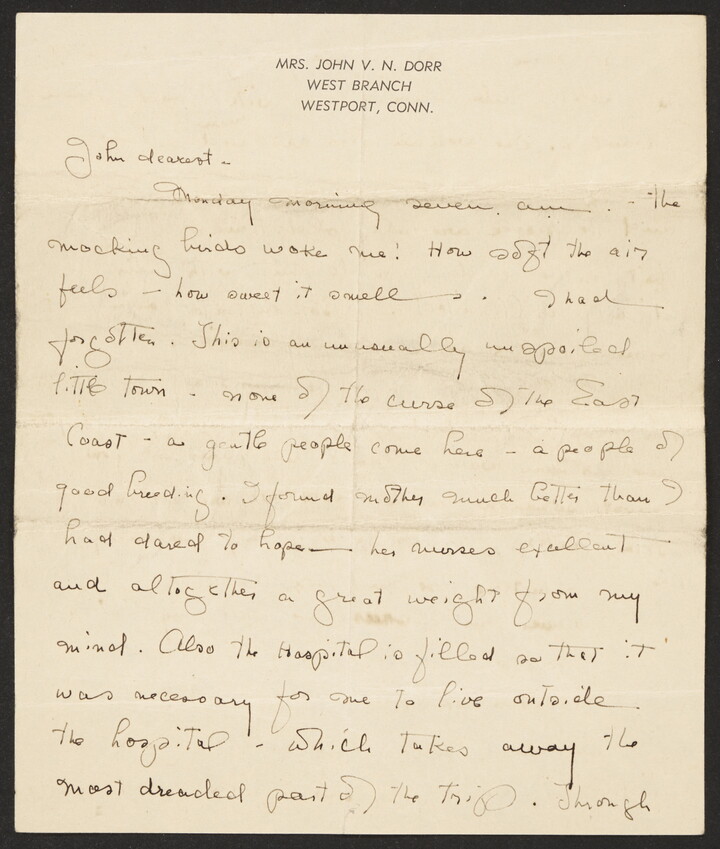 MRS. JOHN V. N. DORR
WEST BRANCH
WESTPORT, CONN.
John dearest -
Monday morning seven. am. - The
mocking birds woke me! How soft the air
feels - how sweet it smells. I had
forgotten. This is an unusually unspoiled
little town - none of the curse of the East
Coast - as gentle people come here - a people of
good breeding. I found mother much better than I
had dared to hope — her nurses excellent
and altogether a great weight from my
mind. Also the Hospital is filled so that it
was necessary for me to live outside
the hospital - which takes away the
most dreaded part of the trip. Through